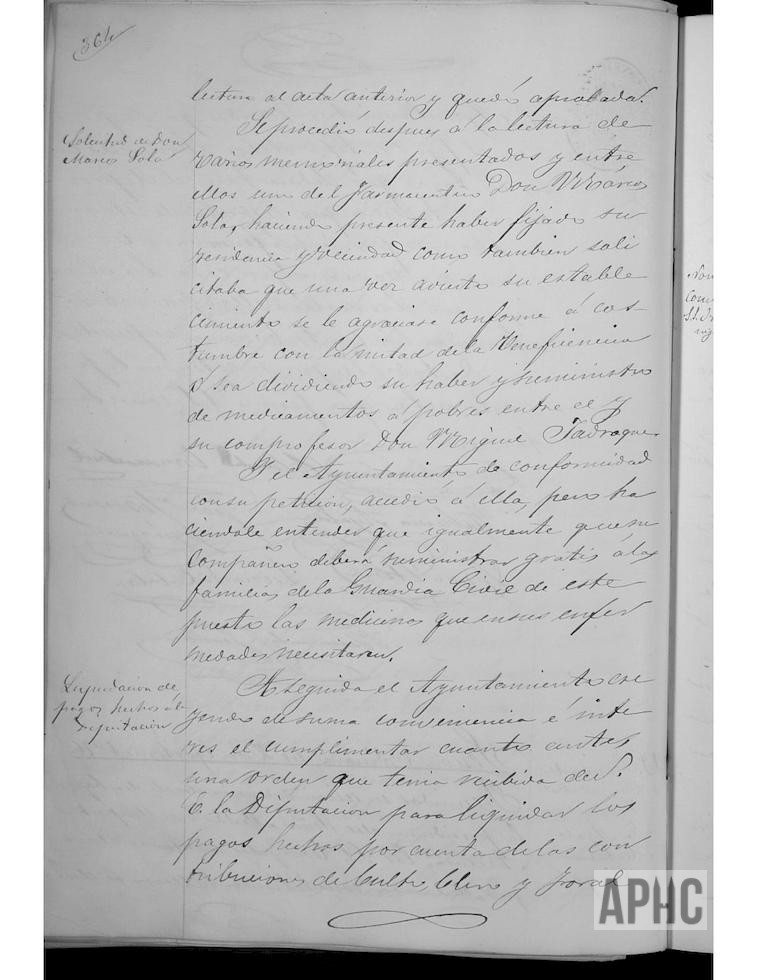 364
lectura al acta anterior y quedó aprobada.
Solicitud de Don
Marcos Sola
Se procedió despues á la lectura de
varios memoriales presentados y entre
ellos uno del Farmaceutico Don Marcos
Sola, haciendo presente haber fijado su
residencia y vecindad como tambien soli
citaba que una vez avierto su estable
cimiento se le agraciase conforme á cos-
tumbre con la mitad de la Beneficencia
ó sea dividiendo su haber y suministro
de medicamentos á pobres entre el y
su comprofesor Don Miguel Jadraque.
Y el Ayuntamiento de conformidad
con su peticion, accedió á ella, pero ha
ciendole entender que igualmente que su
compañero deberá suministrar gratis á las
familias de la Guardia Civil de este
puesto las medicinas que en sus enfer
medades necesitaren.
Liquidacion de
pagos hechos á la
Diputacion
A seguida el Ayuntamiento cre
yendo de suma conveniencia é inte
res el cumplimentar cuanto antes
una orden que tenia recibida de S.
E. la Diputacion para liquidar los
pagos hechos por cuenta de las con
tribuciones de Culto, Clero y Foral
APHC